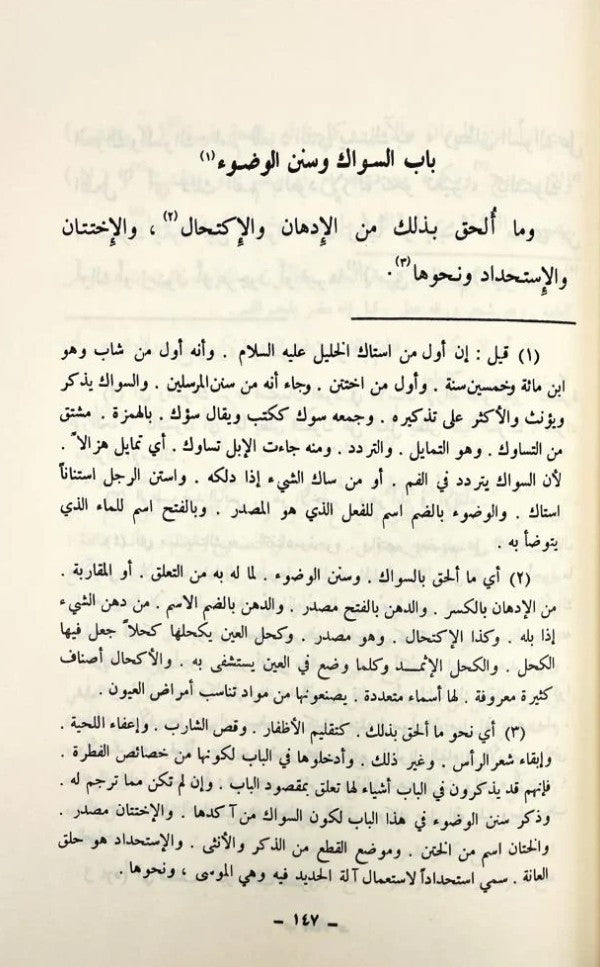 باب السواك وسنن الوضوء (١)
وما أُلحق بذلك من الإدهان والإكتحال (٢) ، والإختتان
والإستحداد ونحوها (٣) .
(١) قيل : إن أول من استاك الخليل عليه السلام . وأنه أول من شاب وهو
ابن مائة وخمسين سنة . وأول من اختتن . وجاء أنه من سنن المرسلين . والسواك يذكر
ويؤنث والأكثر على تذكيره . وجمعه سوك ككتب ويقال سؤك . بالهمزة . مشتق
من التساوك . وهو التمايل . والتردد . ومنه جاءت الإبل تساوك . أي تمايل هزالاً .
لأن السواك يتردد في الفم . أو من ساك الشيء إذا دلكه . واستن الرجل استناناً
استاك . والوضوء بالضم اسم للفعل الذي هو المصدر . وبالفتح اسم للماء الذي
يتوضأ به .
(٢) أي ما ألحق بالسواك . وسنن الوضوء . لما له به من التعلق . أو المقاربة .
من الإدهان بالكسر . والدهن بالفتح مصدر . والدهن بالضم الاسم . من دهن الشيء
إذا بله . وكذا الإكتحال . وهو مصدر . وكحل العين يكحلها كحلاً جعل فيها
الكحل . والكحل الإثمد وكلما وضع في العين يستشفى به . والأكحال أصناف
كثيرة معروفة . لها أسماء متعددة . يصنعونها من مواد تناسب أمراض العيون .
(٣) أي نحو ما ألحق بذلك . كتقليم الأظفار . وقص الشارب . وإعفاء اللحية .
وإبقاء شعر الرأس . وغير ذلك . وأدخلوها في الباب لكونها من خصائص الفطرة .
فإنهم قد يذكرون في الباب أشياء لها تعلق بمقصود الباب . وإن لم تكن مما ترجم له .
وذكر سنن الوضوء في هذا الباب لكون السواك من آكدها . والإختتان مصدر .
والختان اسم من الختن . وموضع القطع من الذكر والأنثى . والإستحداد هو حلق
العانة . سمي استحداداً لاستعمال آلة الحديد فيه وهي الموسى ، ونحوها .
– ١٤٧ –